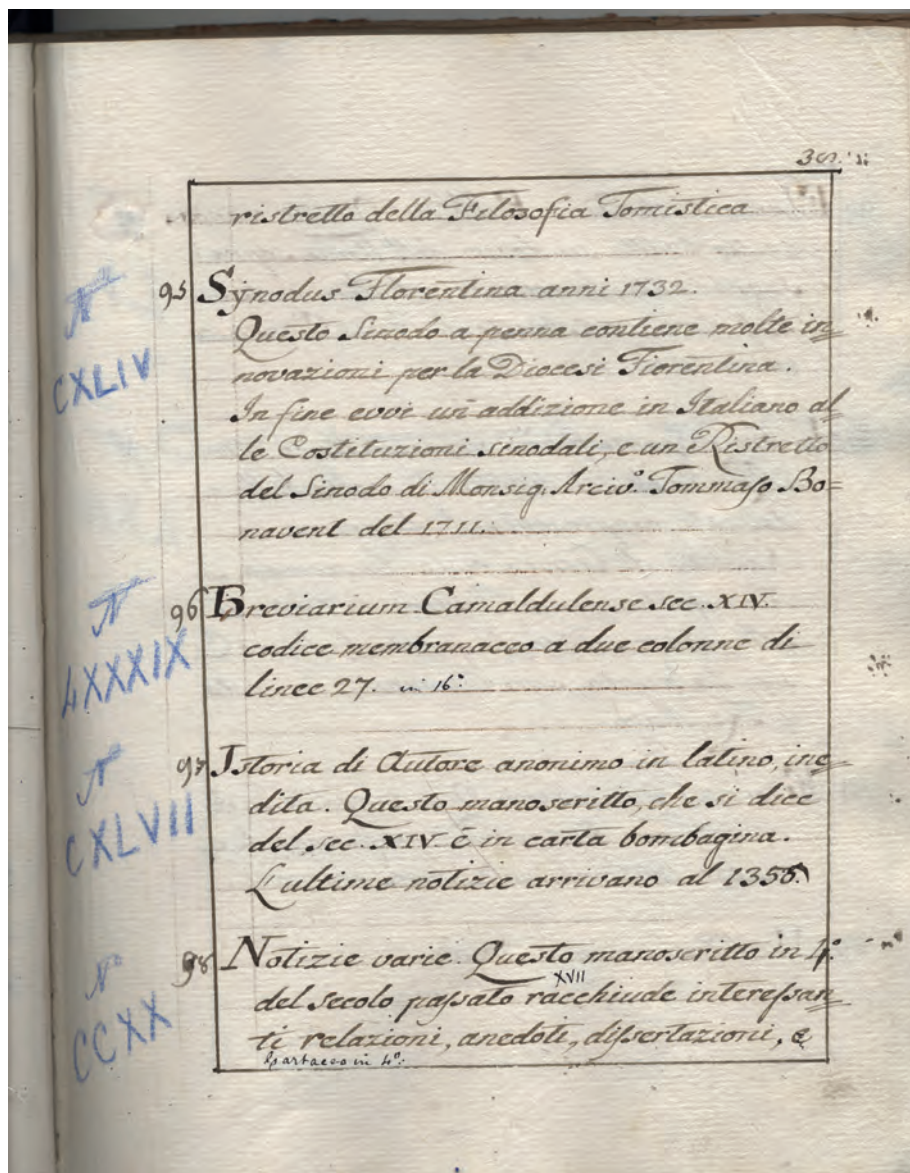 ristretto della Filosofia Tomistica
N
CXLIV
95 Synodus Florentina anni 1732.
Questo Sinodo a penna contiene molte in=
novazioni per la Diocesi Fiorentina.
In fine evvi un addizione in Italiano al=
le Costituzioni sinodali, e un Ristretto
del Sinodo di Monsig. Arciv.o Tommaso Bo=
navent del 1711.
N
4XXXIX
96 Breviarium Camaldulense sec. XIV.
codice membranaceo a due colonne di
linee 27. in 16.o
N
CXLVII
97 Istoria di Autore anonimo in latino, ine=
dita. Questo manoscritto, che si dice
del sec. XIV è in carta bombagina.
L'ultime notizie arrivano al 1356.
No
CCXX
98 Notizie varie. Questo manoscritto in 4.o
XVII
del secolo passato racchiude interessan=
ti relazioni, anedoti, dissertazioni, e
Cartaceo in 4.o